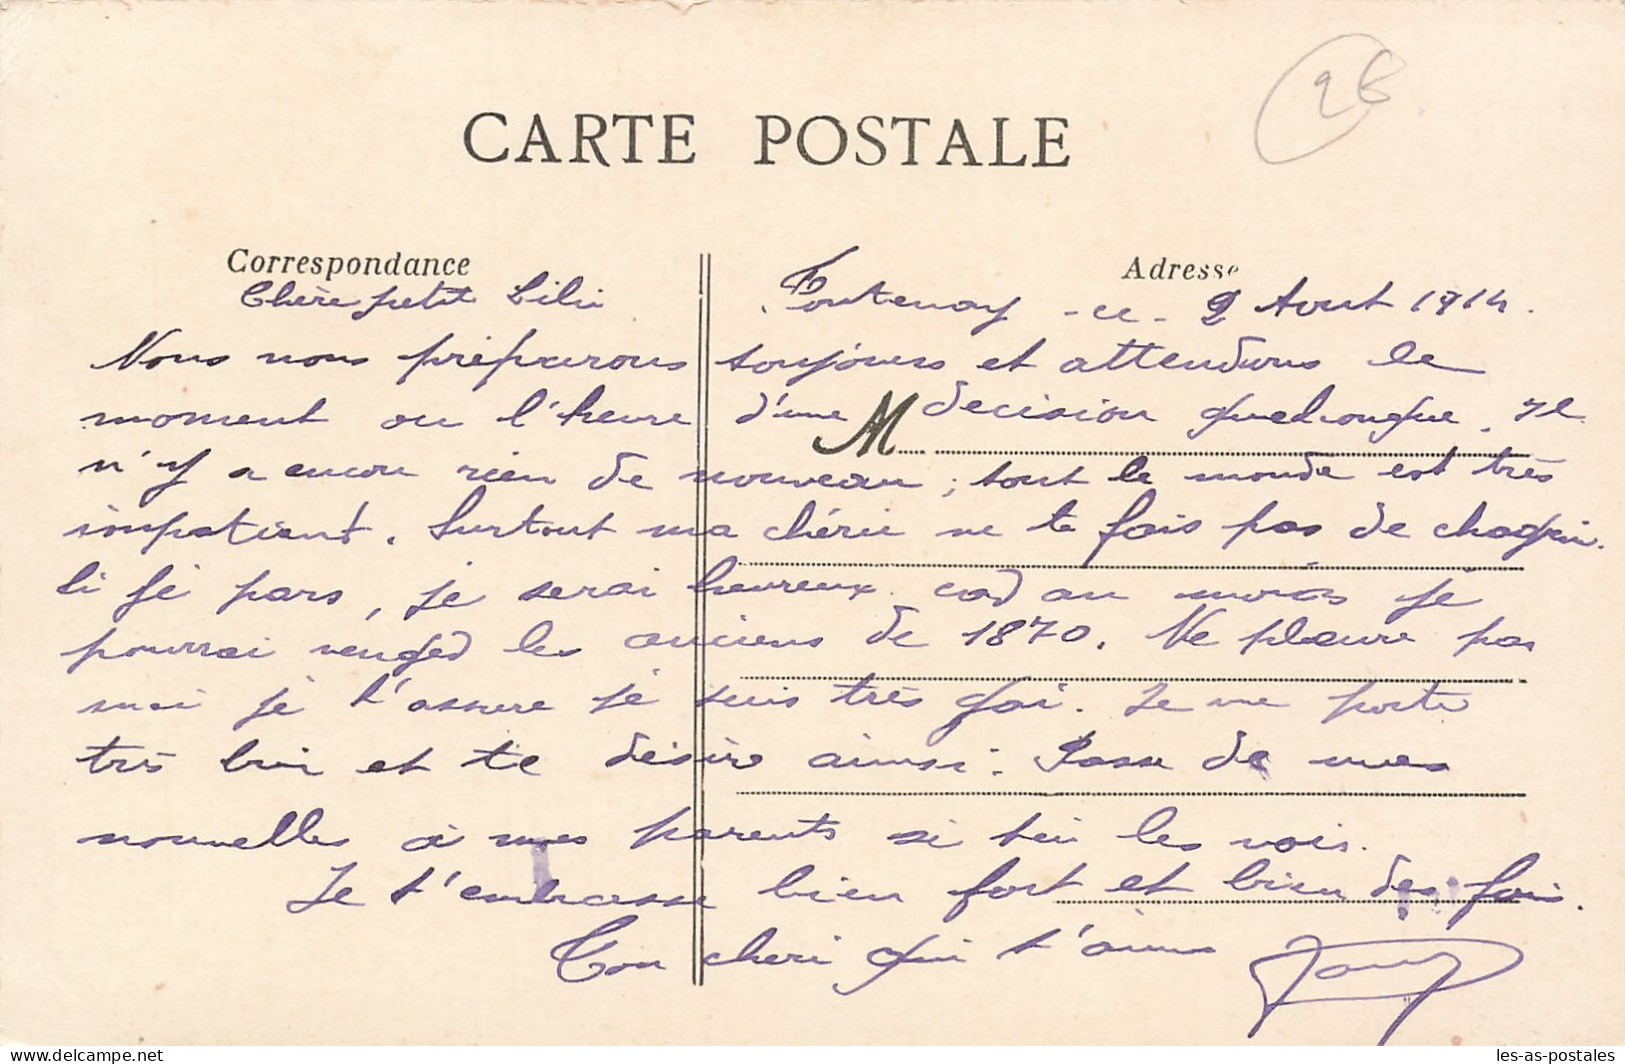 28
CARTE POSTALE
Correspondance
Adresse
M
Chère petit Lili
Fontenay - ce - 2 Aout 1914.
Nous nous préparons toujours et attendons le
moment ou l'heure d'une decision quelconque. Il
n'y a encor rien de nouveau ; tout le monde est très
impatient. Surtout ma chérie ne te fais pas de chagrin.
Si je pars, je serai heureux car au moins je
pourrai venger les anciens de 1870. Ne pleure pas
moi je t'assure je suis très gai. Je me porte
très bien et te désire ainsi. Passe de mes
nouvelles à mes parents si tu les vois.
Je t'embrasse bien fort et bien des fois.
Ton cheri qui t'aime
Veuillez fermer / Close
les-as-postales